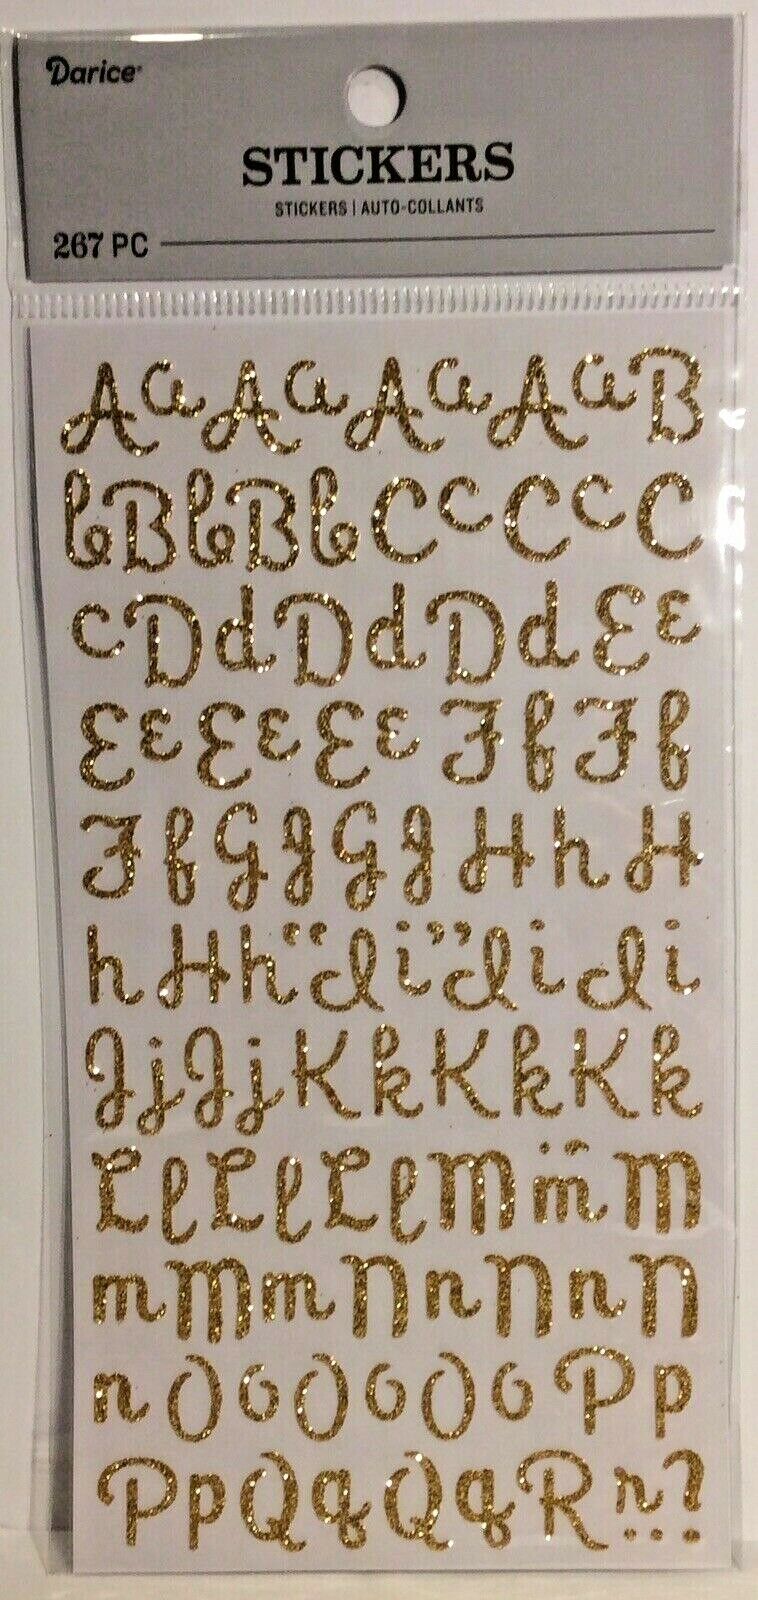 Darice
STICKERS
STICKERS | AUTO-COLLANTS
267 PC
A a A a A a A a B
b B b B b C c C c C
c D d D d D d E e
E e E e E e F f F f
F f G g G g H h H
h H h “ I i ” I i I i
J j J j K k K k K k
L l L l L l M m M
m M m N n N n N
n O o O o O o P p
P p Q q Q q R r ?